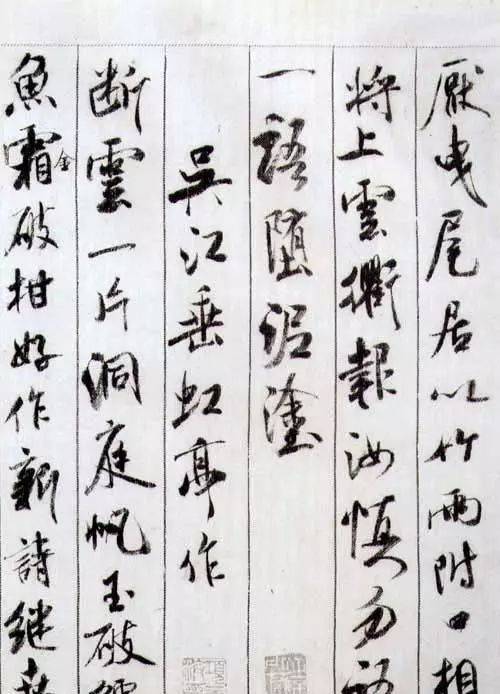 厭曳尾居以竹兩附口相
將上雲衢報汝慎勿語
一語墮泥塗
吳江垂虹亭作
断雲一片洞庭帆玉破
魚霜金破柑好作新詩継